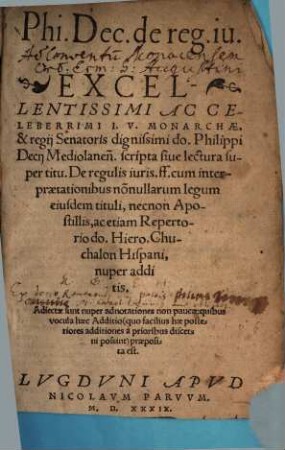 Phi. Dec. de reg. iu.
Ad Conventū Monacensem
Ord. Erem: S: Augustini
EXCEL-
LENTISSIMI AC CE-
LEBERRIMI I. V. MONARCHÆ.
& regij Senatoris dignissimi do. Philippi
Decij Mediolaneñ. scripta siue lectura su-
per titu. De regulis iuris. ff. cum inter-
prætationibus nõnullarum legum
eiusdem tituli, necnon Apo-
stillis, ac etiam Reperto-
rio do. Hiero. Chu-
chalon Hispani,
nuper addi
tis.
Adiectæ sunt nuper adnotationes non paucæ: quibus
vocula hæc Additio (quo facilius hæ poste-
riores additiones à prioribus discer-
ni possint) præposi-
ta est.
LVGDVNI APVD
NICOLAVM PARVVM.
M. D. XXXIX.